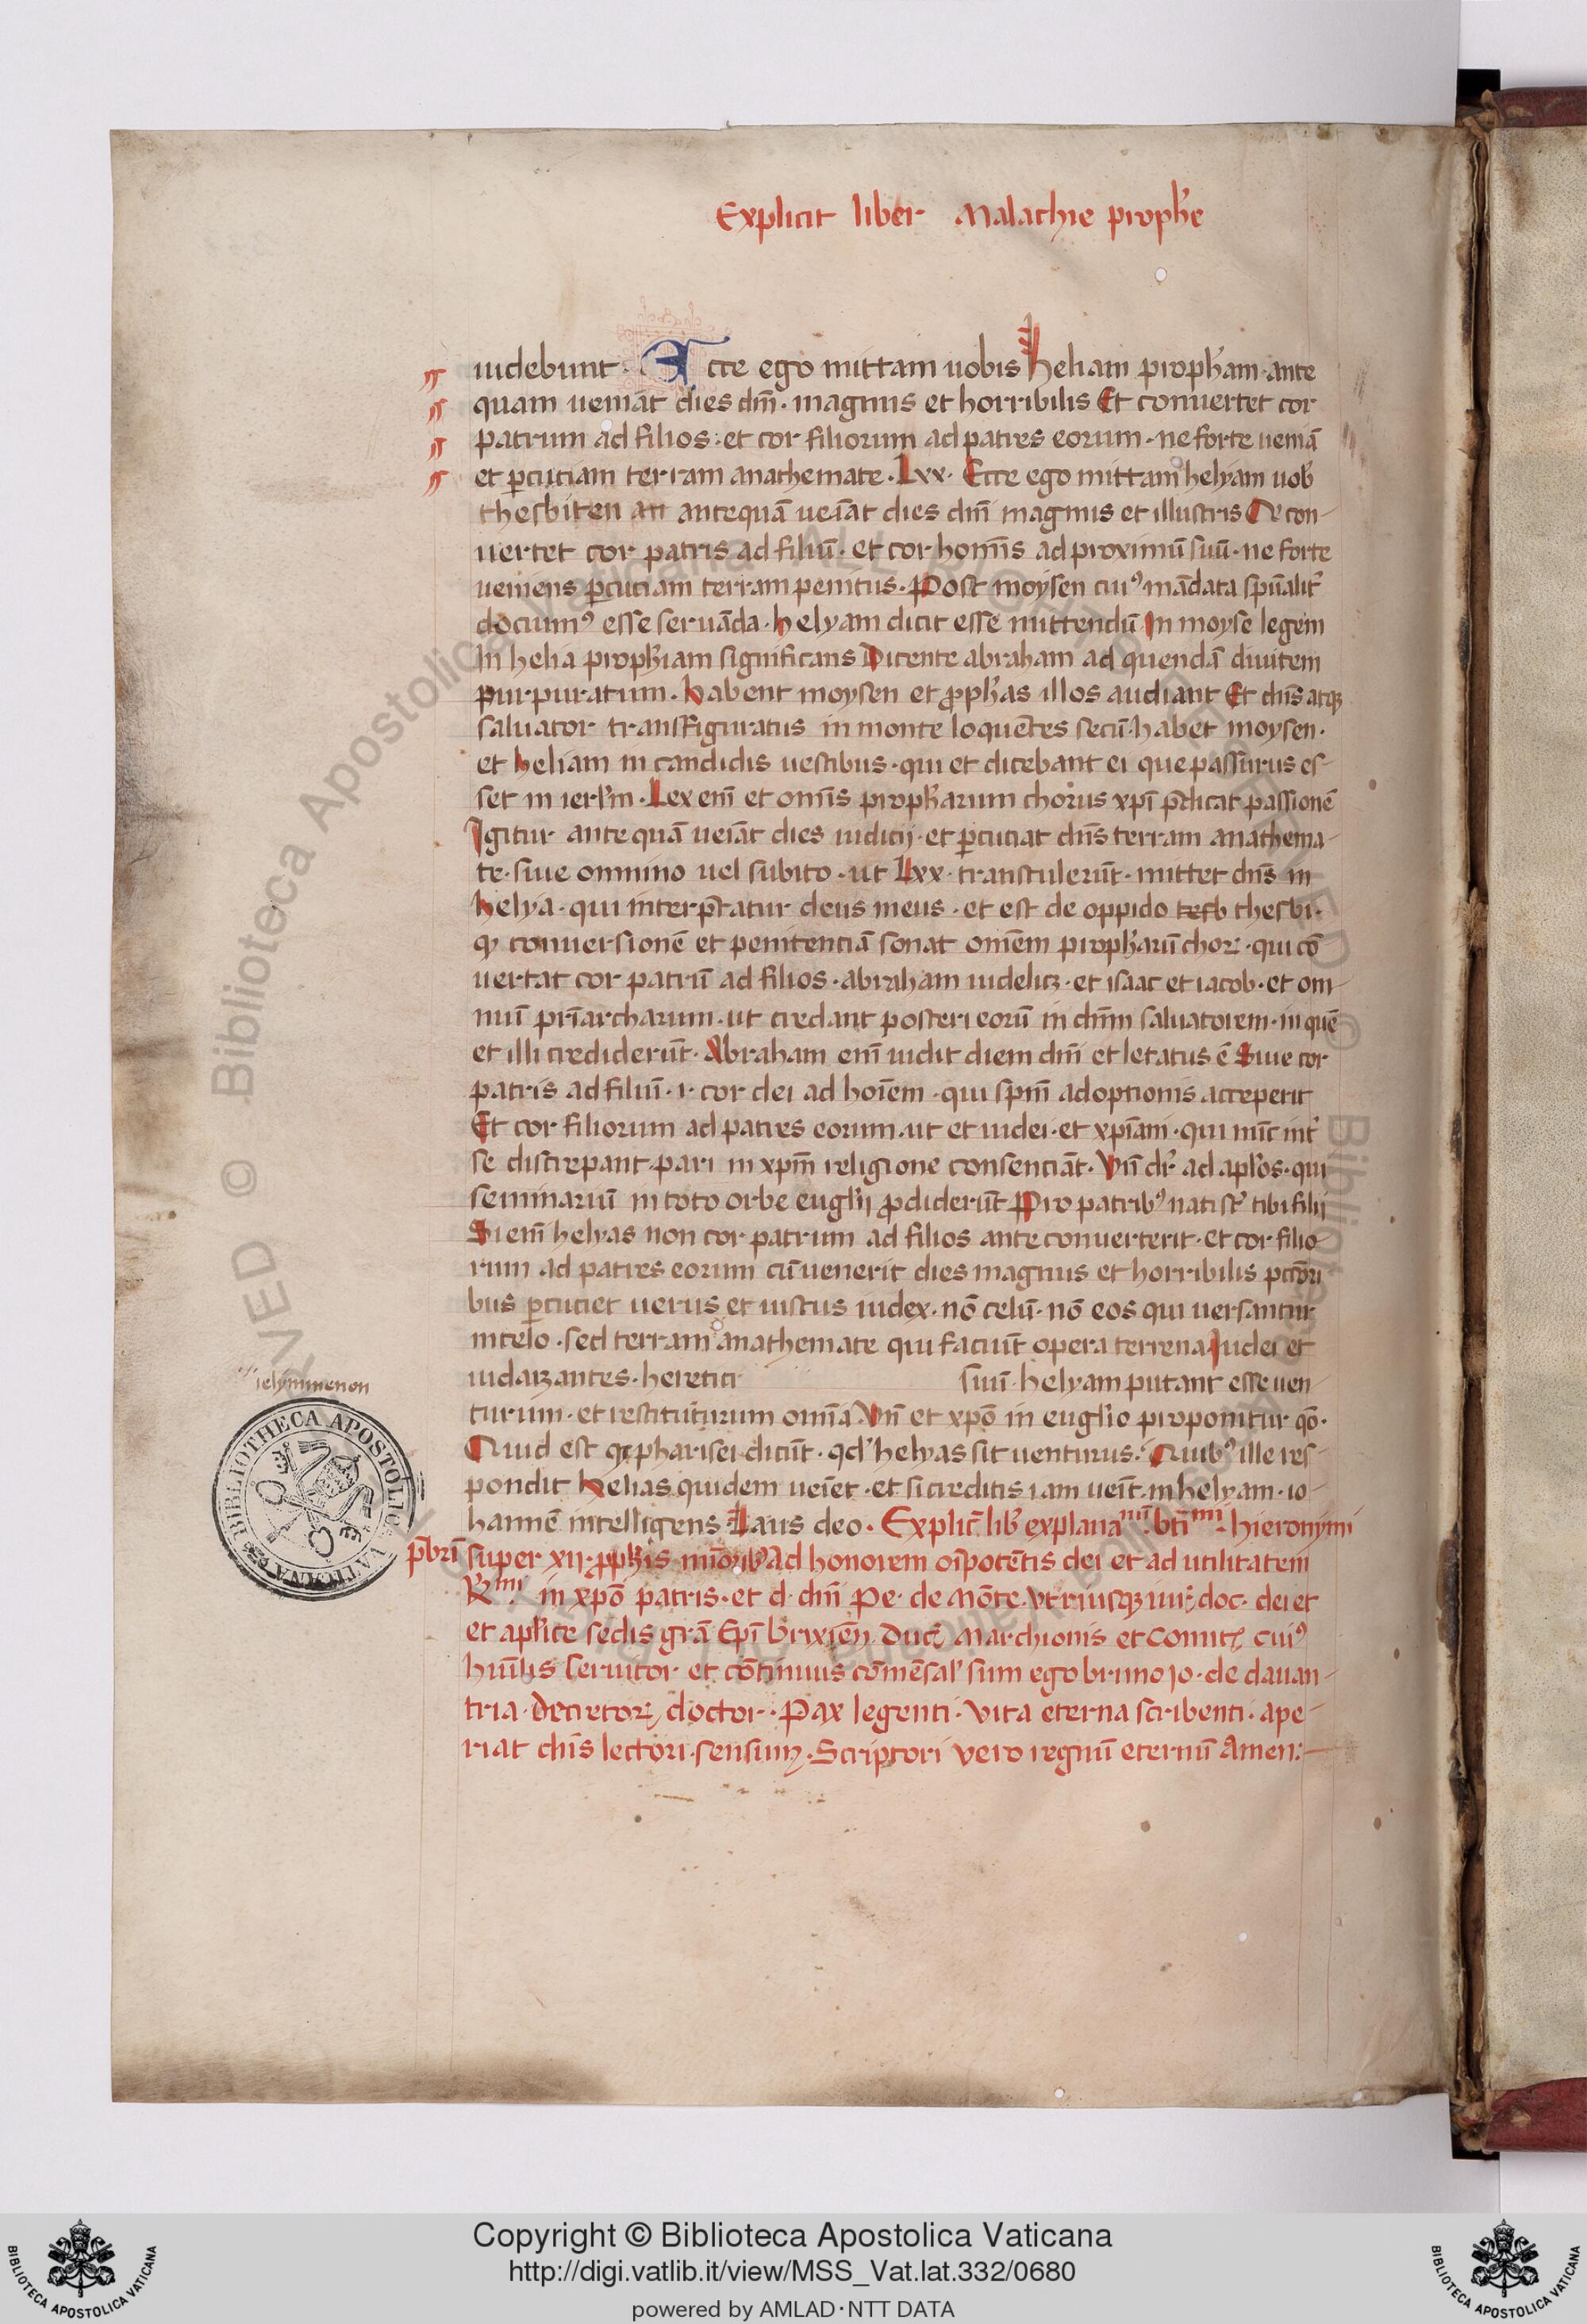 Explicit liber Malachie prophe
uidebunt · Ecce ego mittam uobis heliam propham · ante
quam ueniāt dies dnī · magnus et horribilis Et conuertet cor
patrum ad filios : et cor filiorum ad patres eorum · ne forte ueniā
et pcutiam terram anathemate · Lxx · Ecce ego mittam helyam uob
thesbiten an antequā ueīat dies dnī magnus et illustris Qe con-
uertet cor patris ad filiū · et cor homīs ad proximū suū · ne forte
ueniens pcutiam terram penitus · Post moysen cuiꝰ mādata spūalit
docuimꝰ esse seruāda · helyam dicit esse mittendū In moyse legem
In helia prophiam significans Dicente abraham ad quendā diuitem
purpuratum · habent moysen et prophas illos audiant Et dnīs atqꝫ
saluator transfiguratus in monte loquētes secū · habet moysen ·
et heliam in candidis uestibus · qui et dicebant ei que passurus es-
set in ierlm · Lex enī et omīs propharum chorus xpī pdicat passionē
Igitur ante quā ueīat dies iudicij · et pcutiat dnīs terram anathema-
te · siue omnino uel subito · ut Lxx · transtulerūt · mittet dnīs in
helya · qui interptatur deus meus · et est de oppido tesb thesbi ·
qꝫ conuersionē et penitentiā sonat omēm propharū chorꝝ · qui cō
uertat cor patrū ad filios · abraham uidelicꝫ · et isaac et iacob · et om-
niū priarcharum · ut credant posteri eorū in dnm saluatorem · in quē
et illi crediderūt · Abraham enī uidit diem dnī et letatus ē Siue cor
patris ad filiū · i · cor dei ad hoīem · qui spm adoptionis acceperit
Et cor filiorum ad patres eorum · ut et iudei · et xpīani · qui nūc int
se discrepant · pari in xpm religione consentiāt · Vn dr ad aplos · qui
seminariū in toto orbe euglij pdiderūt Pro patribꝰ nati st tibi filij
Si enī helyas non cor patrum ad filios ante conuerterit · et cor filio-
rum ad patres eorum cū uenerit dies magnus et horribilis pctori
bus pcutiet uerus et iustus iudex · nō celū · nō eos qui uersantur
in celo · sed terram anathemate qui faciūt opera terrena Iudei et
iudaizantes · heretici suū · helyam putant esse uen-
ielymmenon
turum · et restituturum omīa Vn et xpō in euglio proponitur qō ·
Quid est qꝫ pharisei dicūt · qd helyas sit uenturus · Quibꝰ ille res-
pondit helias quidem ueīet · et si creditis iam ueīt · in helyam · io-
hannē intelligens · Laus deo · Explic̄ lib explana btī hieronymi
pbrī super xij · pphis minoribꝰ Ad honorem oīpotētis dei et ad utilitatem
R in xpō patris · et d · dnī Pe · de Mōte · Vtriusqꝫ iur doc · dei et
et aplice sedis grā Epī brixien̄ Duc̄ Marchionis et Comit̄ cuiꝰ
humīlis seruitor et cōtinuus cōmēsal sum ego bruno jo · de dauan-
tria · Decretoꝝ doctor · Pax legenti · Vita eterna scribenti · ape-
riat dnīs lectori sensum · Scriptori vero regnū eternū Amen :
BIBLIOTHECA APOSTOLICA VATICANA
© Biblioteca Apostolica Vaticana ALL RIGHTS RESERVED
Copyright © Biblioteca Apostolica Vaticana
http://digi.vatlib.it/view/MSS_Vat.lat.332/0680
powered by AMLAD · NTT DATA
BIBLIOTECA APOSTOLICA VATICANA
BIBLIOTECA APOSTOLICA VATICANA